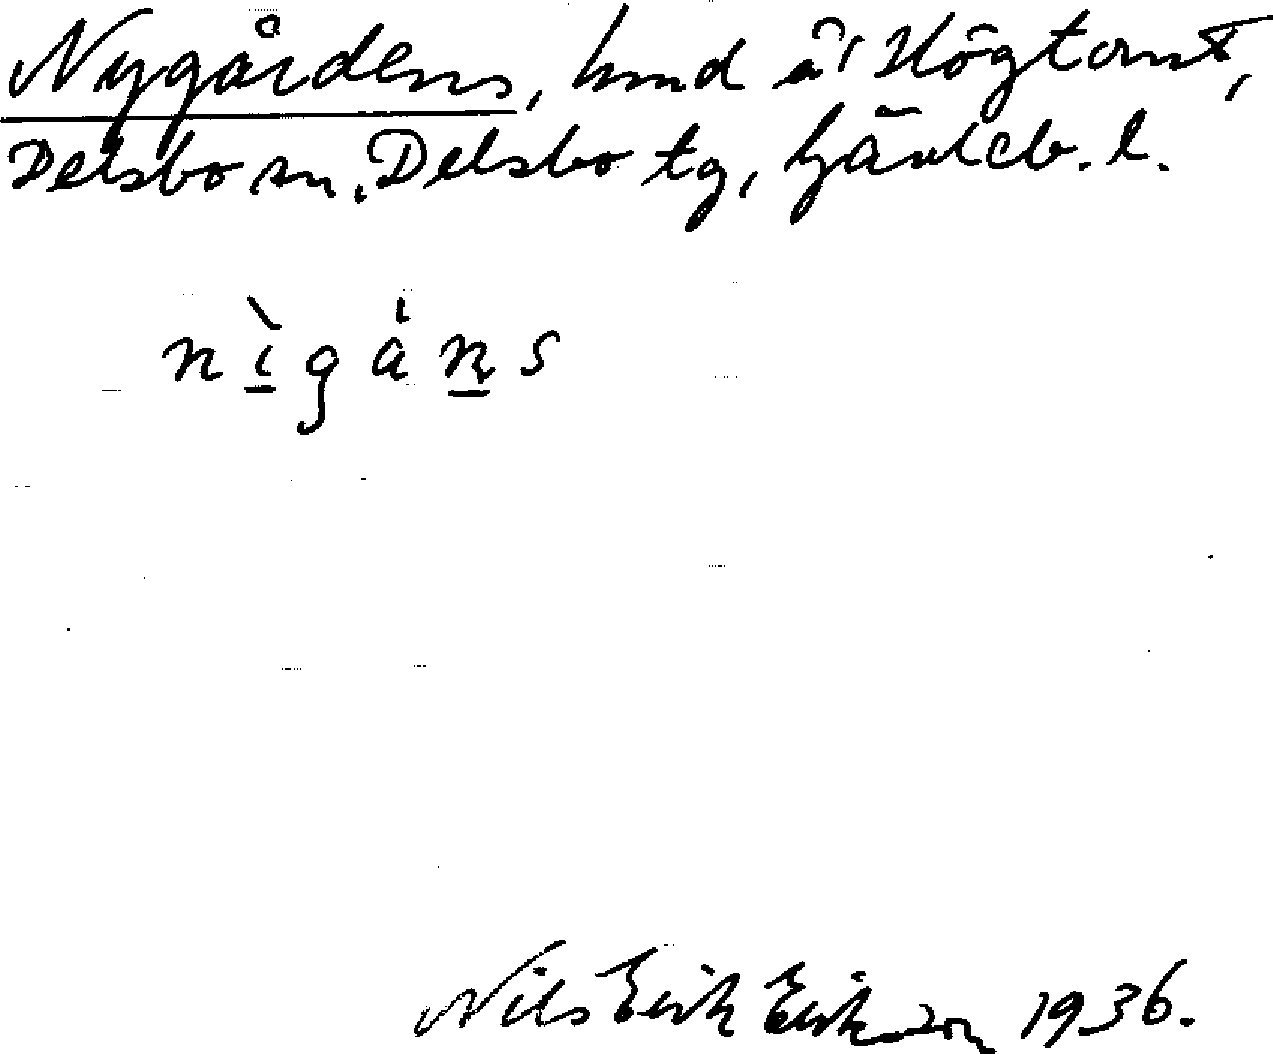 Nygårdens, hmd å Högtomt,
Delsbo sn, Delsbo tg, Gävleb. l.
nìgáṇs
Nils Erik Erikson 1936.